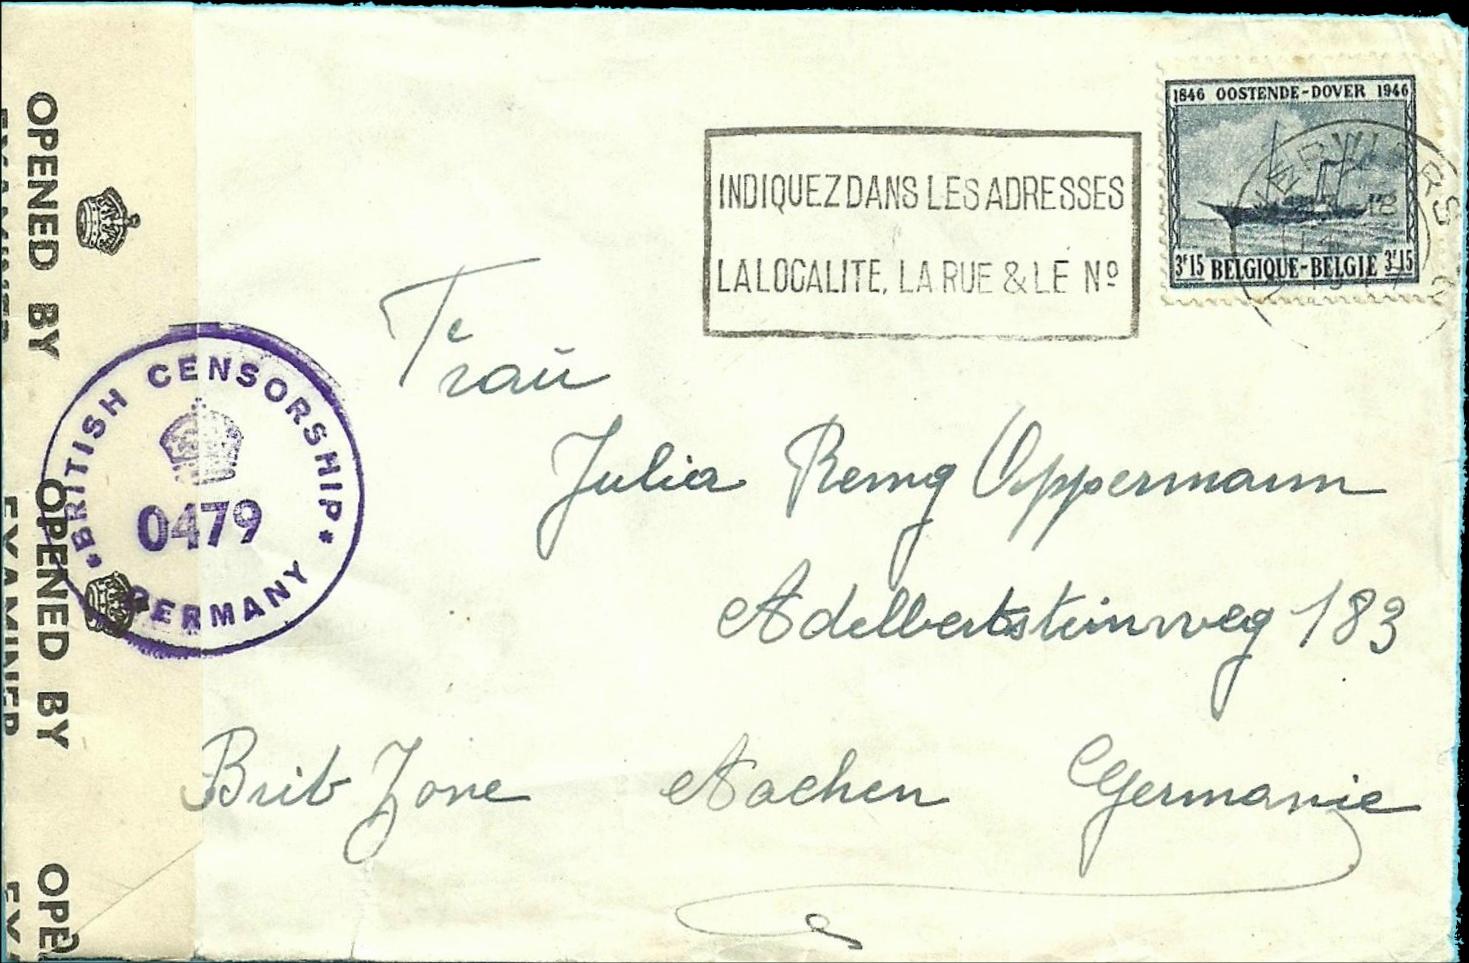 OPENED BY
EXAMINER
OPENED BY
EXAMINER
OPE
EX
BRITISH CENSORSHIP
0479
GERMANY
INDIQUEZ DANS LES ADRESSES
LA LOCALITE, LA RUE & LE Nº
1846 OOSTENDE-DOVER 1946
3F15 BELGIQUE-BELGIE 3F15
VERVIERS
18
Frau
Julia Remy Oppermann
Adelbertsteinweg 183
Brit Zone Aachen Germanie